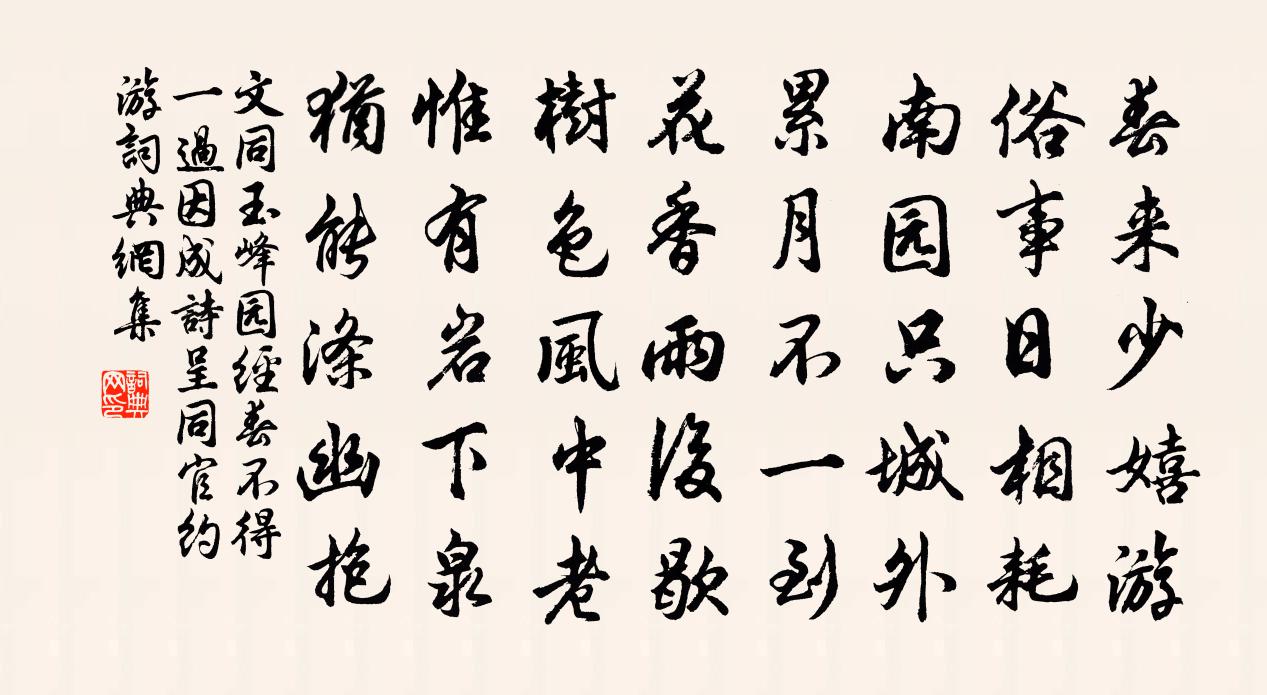 春来少嬉游
俗事日相耗
南园只城外
累月不一到
花香雨後歇
樹色風中老
惟有岩下泉
猶能滌幽抱
文同玉峰园經春不得
一過因成詩呈同官约
游詞典網集
詞典网印